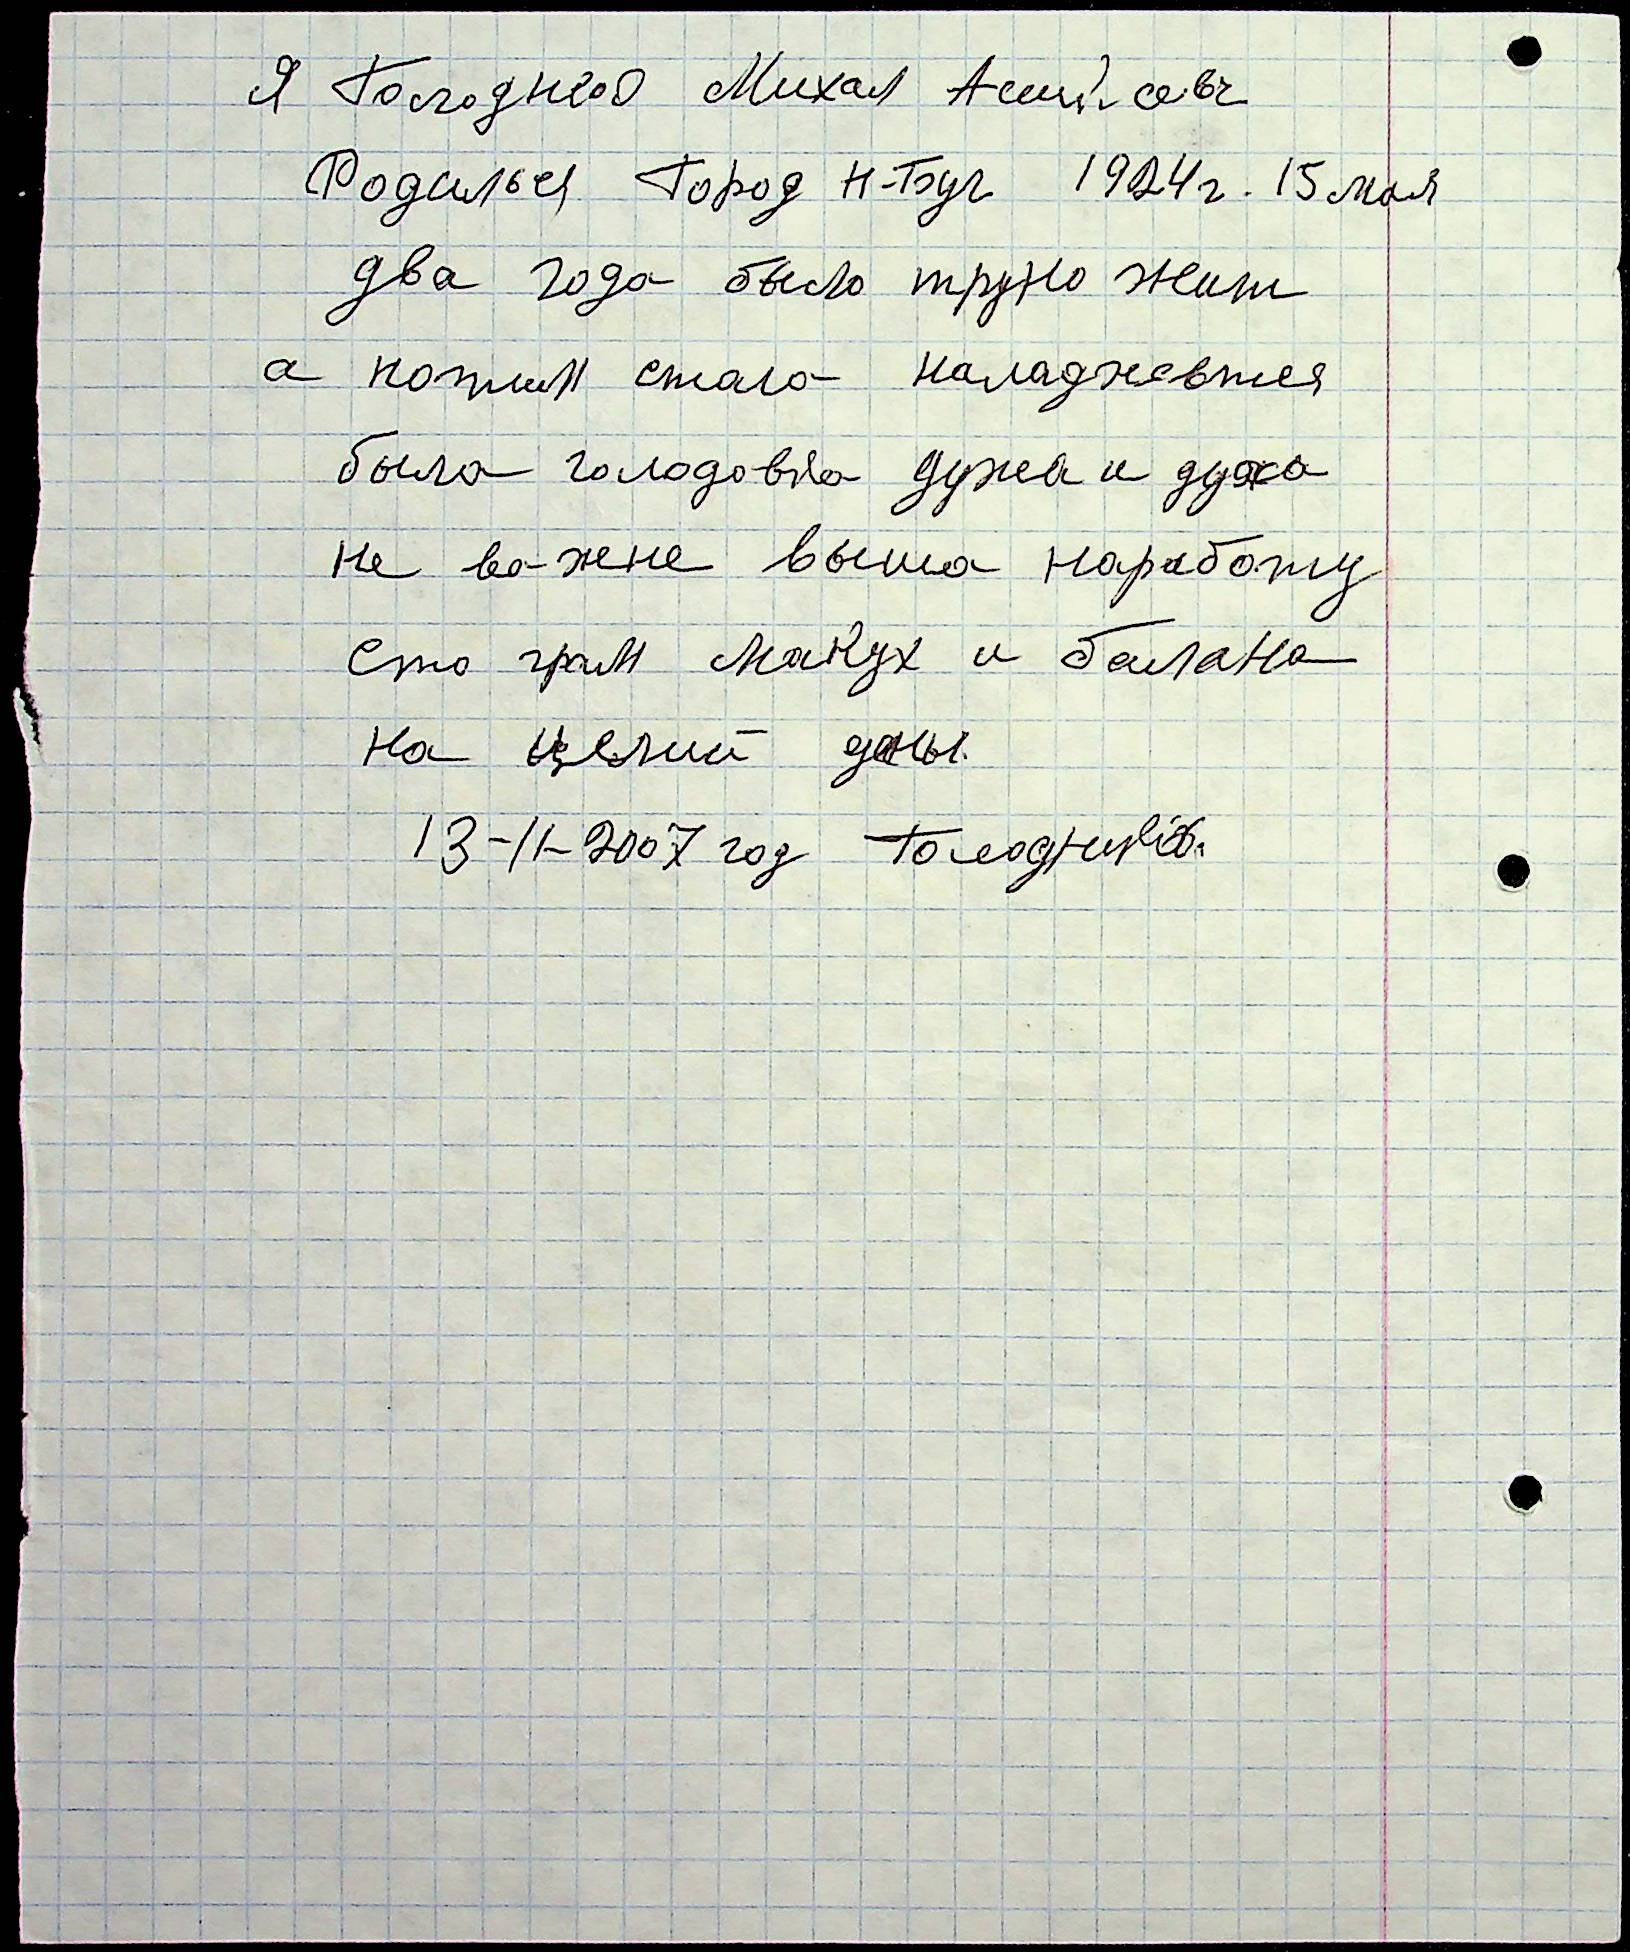 Я Михал
Родилься Город Н-Буг 1924г. 15 мая
два года было труно жит
а потим стало наладжевтся
была голодовка дужа и дужа
не важне выша наработу
сто грам макух и балана
на целий даны.
13-11-2007 год